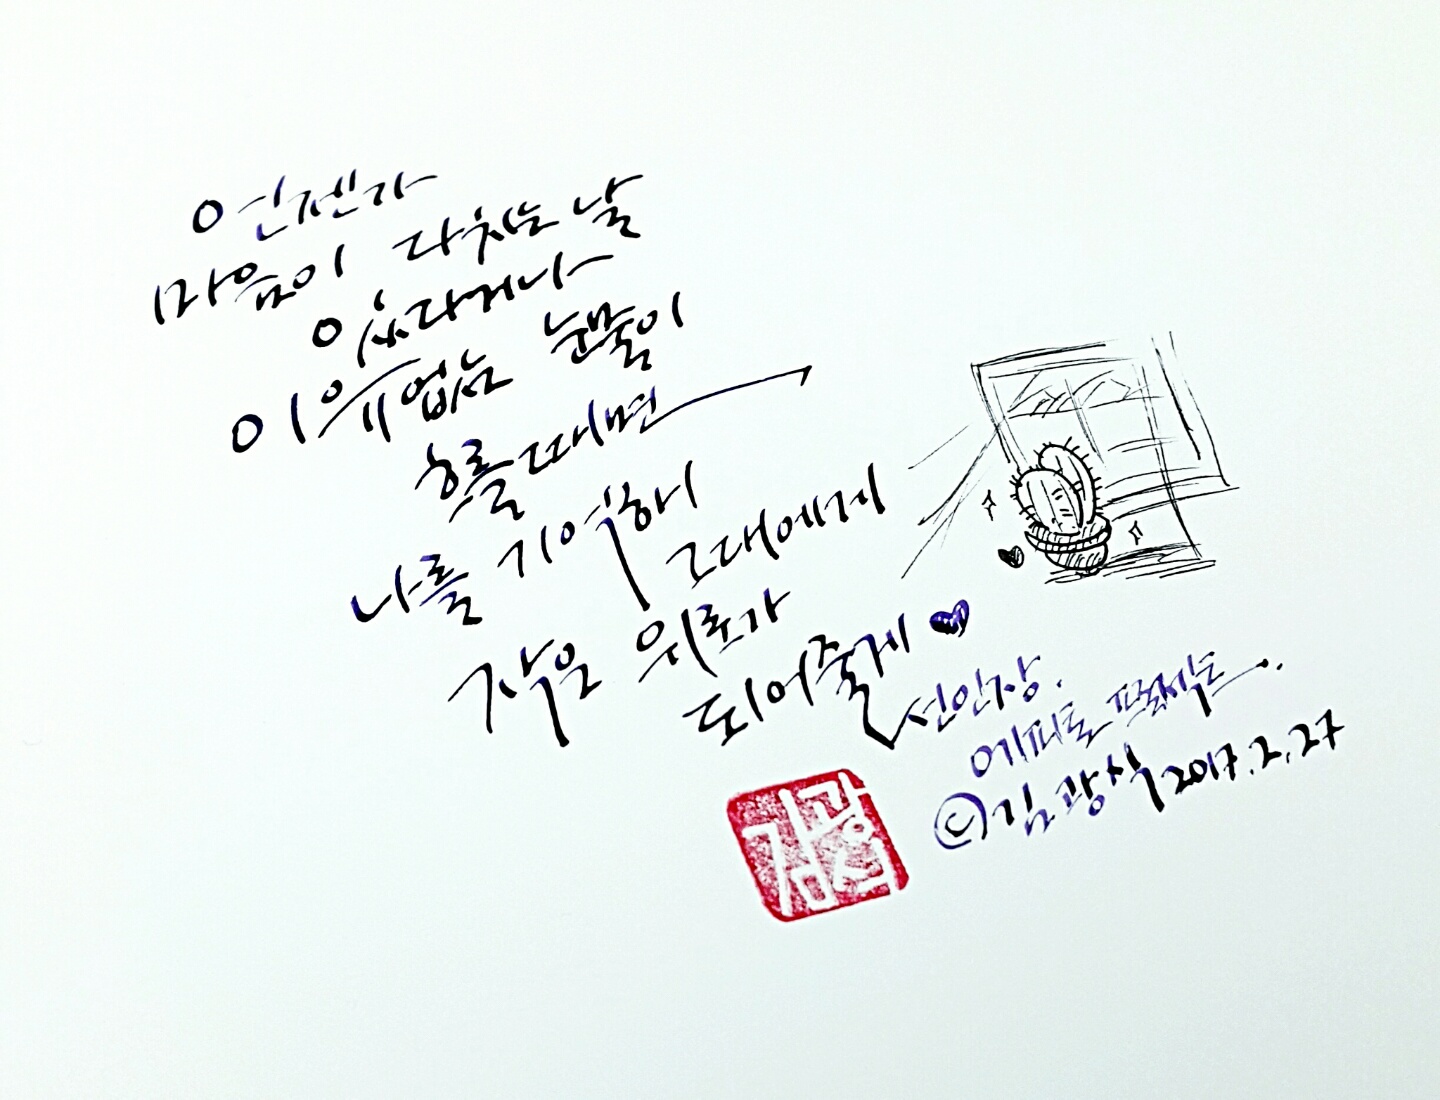 언젠가
마음이 다치는 날
있다거나
이유없는 눈물이
흐를때면
나를 기억해
그대에게
작은 위로가
되어줄게
선인장.
에피톤 프로젝트.
©김광석 2017.2.27
김광석